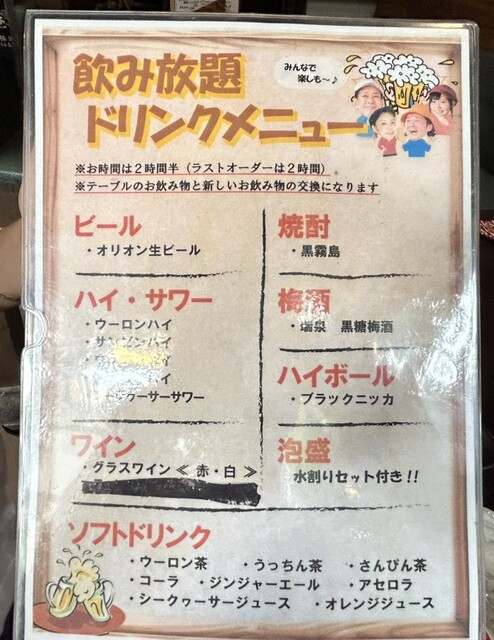 飲み放題
ドリンクメニュー
みんなで
楽しも～♪
※お時間は２時間半（ラストオーダーは２時間）
※テーブルのお飲み物と新しいお飲み物の交換になります
ビール
・オリオン生ビール
ハイ・サワー
・ウーロンハイ
・サンピンハイ
ハイ
ハイ
ークヮーサーサワー
ワイン
・グラスワイン≪ 赤・白 ≫
焼酎
・黒霧島
梅酒
・瑞泉　黒糖梅酒
ハイボール
・ブラックニッカ
泡盛
水割りセット付き!!
ソフトドリンク
・ウーロン茶　・うっちん茶　・さんぴん茶
・コーラ　・ジンジャーエール　・アセロラ
・シークヮーサージュース　・オレンジジュース